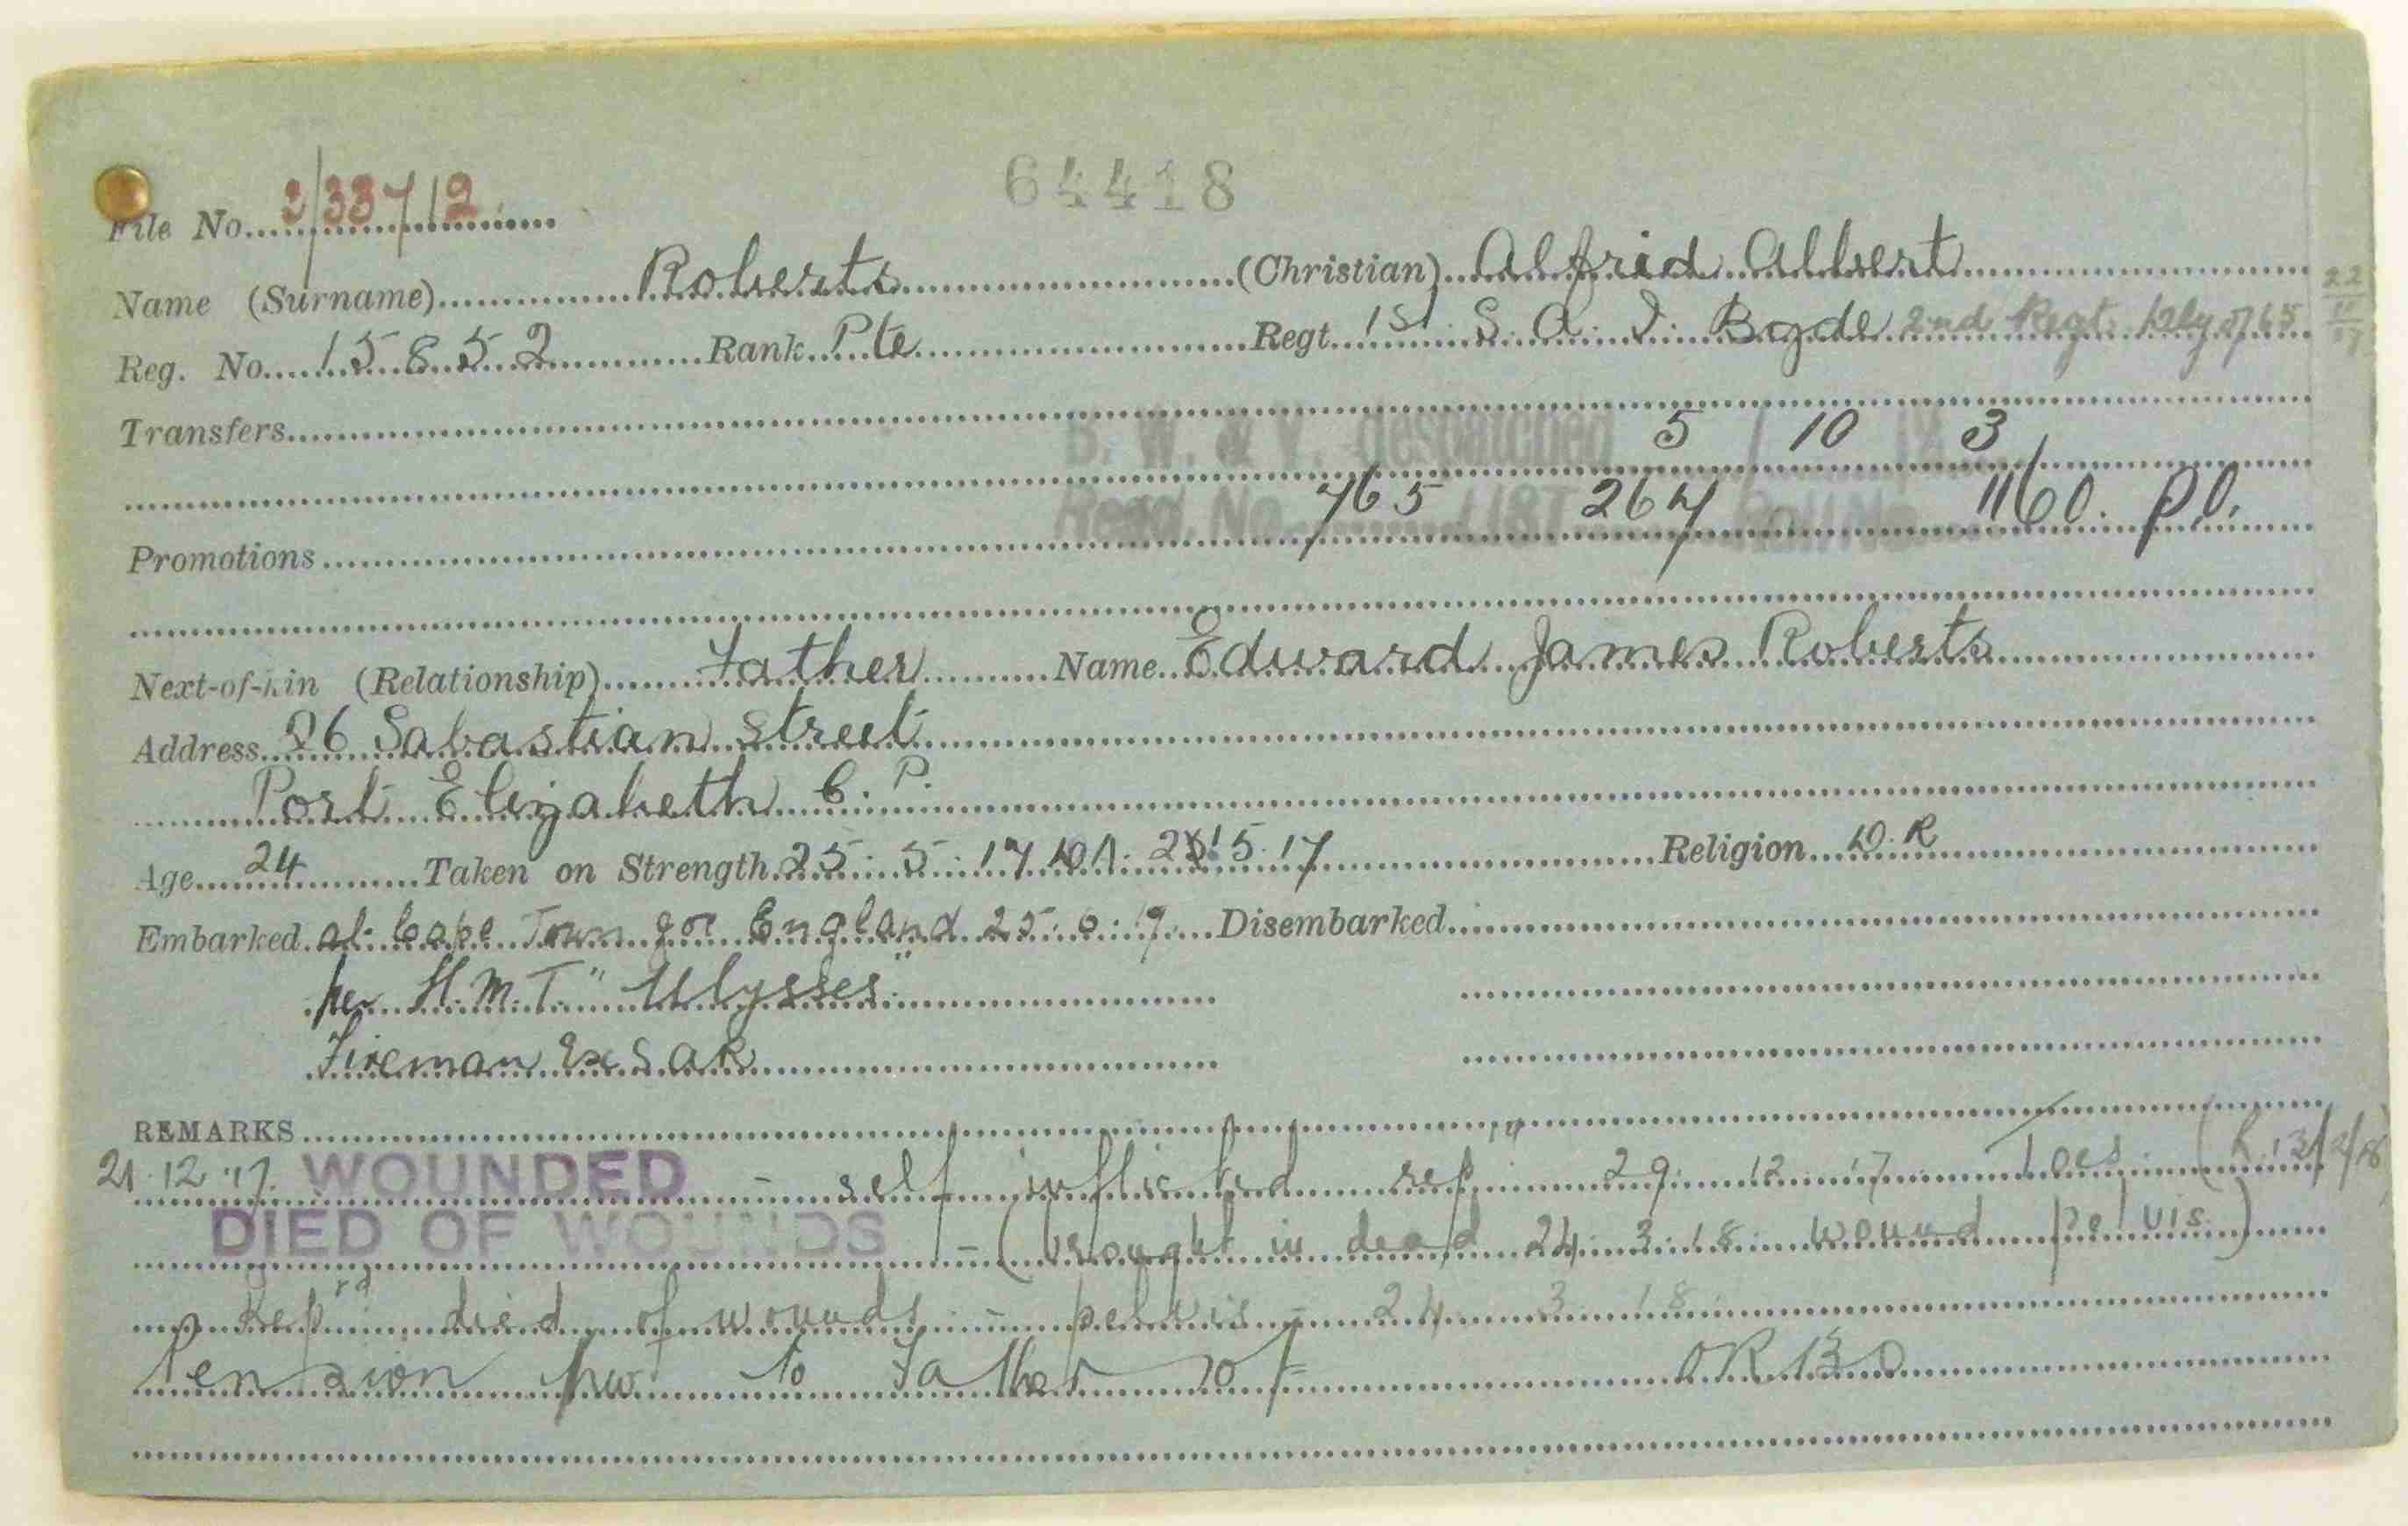 64418
File No. 3/33712
Name (Surname) Roberts (Christian) Alfrid Albert
Reg. No. 15852 Rank Pte Regt. 1st S. A. I. Bgde 2nd Regt.
22
Transfers
B. W. & V. despatched 5 / 10 / 3
Regd. No. 765 LIST 264 Roll No. 1160. P.O.
Promotions
Next-of-kin (Relationship) Father Name Edward James Roberts
Address 26 Sabastian Street
Port Elizabeth C. P.
Age 24 Taken on Strength 25. 5. 17 5. 17 Religion D. R
Embarked at Cape Town for England 25. 6. 17. Disembarked
per H.M.T. "Ulysses"
Fireman Ex S A R
REMARKS
21. 12. 17. WOUNDED - self inflicted rep 29. 12. 17 Toes
DIED OF WOUNDS - (brought in dead 24. 3. 18. wound pelvis)
Rep'rd died of wounds - pelvis - 24. 3. 18.
Pension to Father